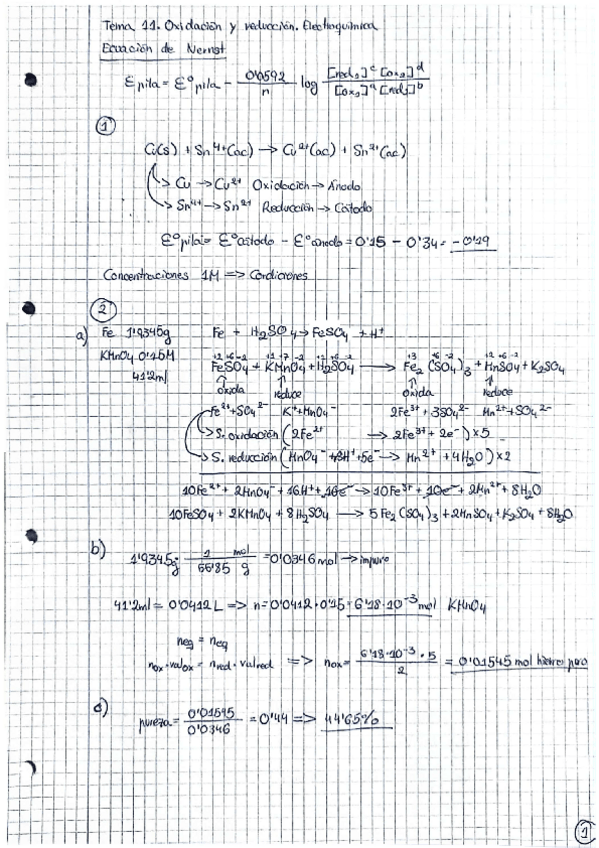 Tema 11. Oxidación y reducción. Electroquímica
Ecuación de Nernst
Ɛpila = Ɛ°pila - 0'0592/n log [red₁]ᶜ[ox₂]ᵈ/[ox₁]ᵃ[red₂]ᵇ
1
Cu(s) + Sn⁴⁺(ac) → Cu²⁺(ac) + Sn²⁺(ac)
Cu → Cu²⁺ Oxidación → Ánodo
Sn⁴⁺ → Sn²⁺ Reducción → Cátodo
Ɛ°pila = Ɛ°cátodo - Ɛ°ánodo = 0'15 - 0'34 = -0'19
Concentraciones 1M => Condiciones
2
a) Fe 1'9345g Fe + H₂SO₄ → FeSO₄ + H⁺
KMnO₄ 0'15M
41'2ml
+2 +6 -2 +1 +7 -2 +1 +6 -2 +3 +6 -2 +2 +6 -2
FeSO₄ + KMnO₄ + H₂SO₄ → Fe₂(SO₄)₃ + MnSO₄ + K₂SO₄
oxida reduce oxida reduce
Fe²⁺+SO₄²⁻ K⁺+MnO₄⁻ 2Fe³⁺ + 3SO₄²⁻ Mn²⁺+SO₄²⁻
S. oxidación (2Fe²⁺ → 2Fe³⁺ + 2e⁻) × 5
S. reducción (MnO₄⁻ + 8H⁺ + 5e⁻ → Mn²⁺ + 4H₂O) × 2
10Fe²⁺ + 2MnO₄⁻ + 16H⁺ + 10e⁻ → 10Fe³⁺ + 10e⁻ + 2Mn²⁺ + 8H₂O
10FeSO₄ + 2KMnO₄ + 8H₂SO₄ → 5Fe₂(SO₄)₃ + 2MnSO₄ + K₂SO₄ + 8H₂O
b) 1'9345g · 1 mol/55'85 g = 0'0346 mol → impuro
41'2ml = 0'0412 L => n = 0'0412 · 0'15 = 6'18 · 10⁻³ mol KMnO₄
neq = neq
nox · valox = nred · valred => nox = 6'18 · 10⁻³ · 5/2 = 0'01545 mol hierro puro
c) pureza = 0'01545/0'0346 = 0'44 => 44'65%
1